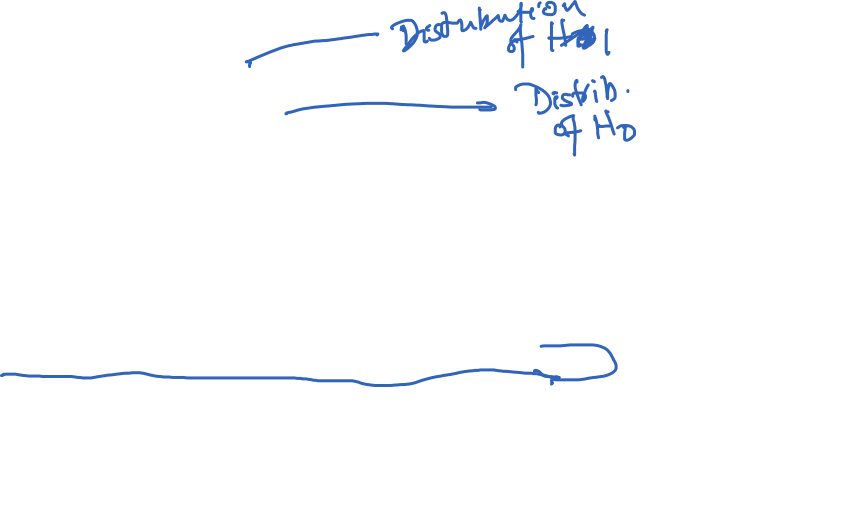 Distribution
of H1
Distrib.
of H0